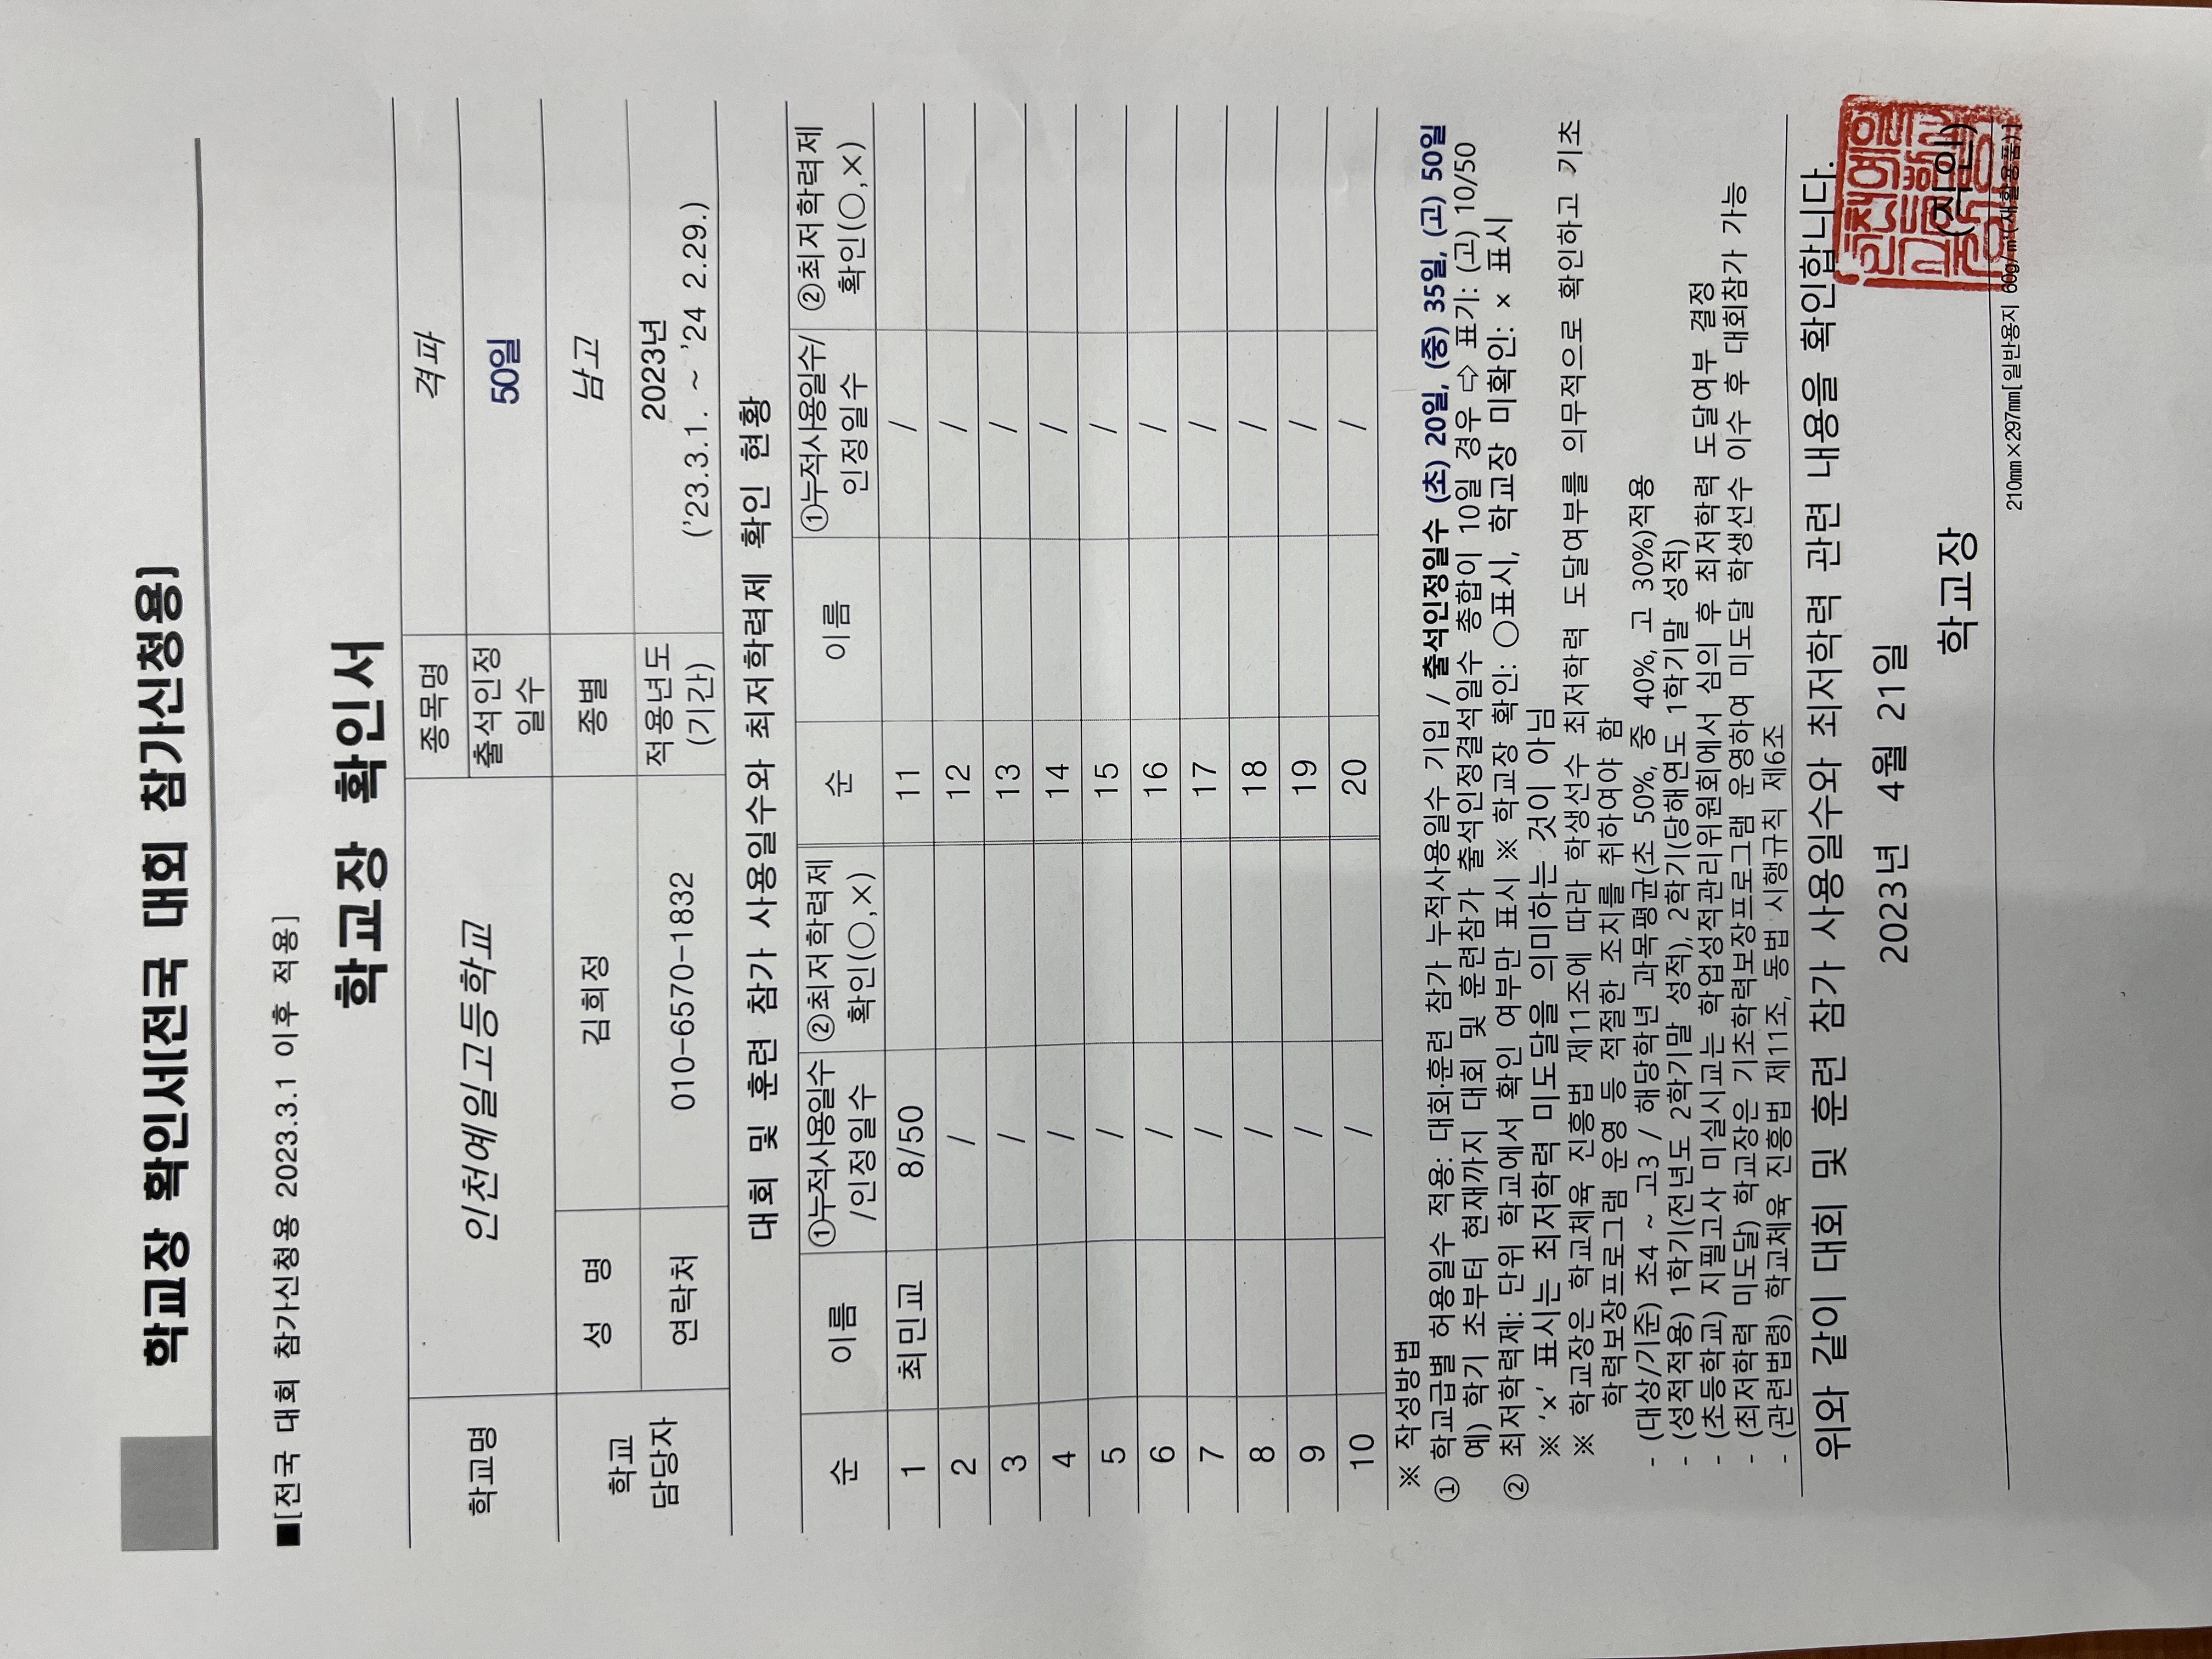 학교장 확인서[전국 대회 참가신청용]
■[전국 대회 참가신청용 2023.3.1 이후 적용]
학교장 확인서
학교명 인천예일고등학교 종목명 격파
출석인정일수 50일
학교 담당자 성 명 김희정 종별 남고
연락처 010-6570-1832 적용년도(기간) 2023년 ('23.3.1. ~ '24 2.29.)
대회 및 훈련 참가 사용일수와 최저학력제 확인 현황
순 이름 ①누적사용일수/인정일수 ②최저학력제 확인(○,×) 순 이름 ①누적사용일수/인정일수 ②최저학력제 확인(○,×)
1 최민교 8/50 11 /
2 / 12 /
3 / 13 /
4 / 14 /
5 / 15 /
6 / 16 /
7 / 17 /
8 / 18 /
9 / 19 /
10 / 20 /
※ 작성방법
① 학교급별 허용일수 적용: 대회·훈련 참가 누적사용일수 기입 / 출석인정일수 (초) 20일, (중) 35일, (고) 50일
예) 학기 초부터 현재까지 대회 및 훈련참가 출석인정결석일수 총합이 10일 경우 ⇨ 표기: (고) 10/50
② 최저학력제: 단위 학교에서 확인 여부만 표시 ※ 학교장 확인: ○표시, 학교장 미확인: × 표시
※ 'x' 표시는 최저학력 미도달을 의미하는 것이 아님
※ 학교장은 학교체육 진흥법 제11조에 따라 학생선수 최저학력 도달여부를 의무적으로 확인하고 기초
학력보장프로그램 운영 등 적절한 조치를 취하여야 함
- (대상/기준) 초4 ~ 고3 / 해당학년 과목평균(초 50%, 중 40%, 고 30%)적용
- (성적적용) 1학기(전년도 2학기말 성적), 2학기(당해연도 1학기말 성적)
- (초등학교) 지필고사 미실시교는 학업성적관리위원회에서 심의 후 최저학력 도달여부 결정
- (최저학력 미도달) 학교장은 기초학력보장프로그램 운영하여 미도달 학생선수 이수 후 대회참가 가능
- (관련법령) 학교체육 진흥법 제11조, 동법 시행규칙 제6조
위와 같이 대회 및 훈련 참가 사용일수와 최저학력 관련 내용을 확인합니다.
2023년 4월 21일
학교장 (직인)
210㎜×297㎜[일반용지 60g/㎡(재활용품)]